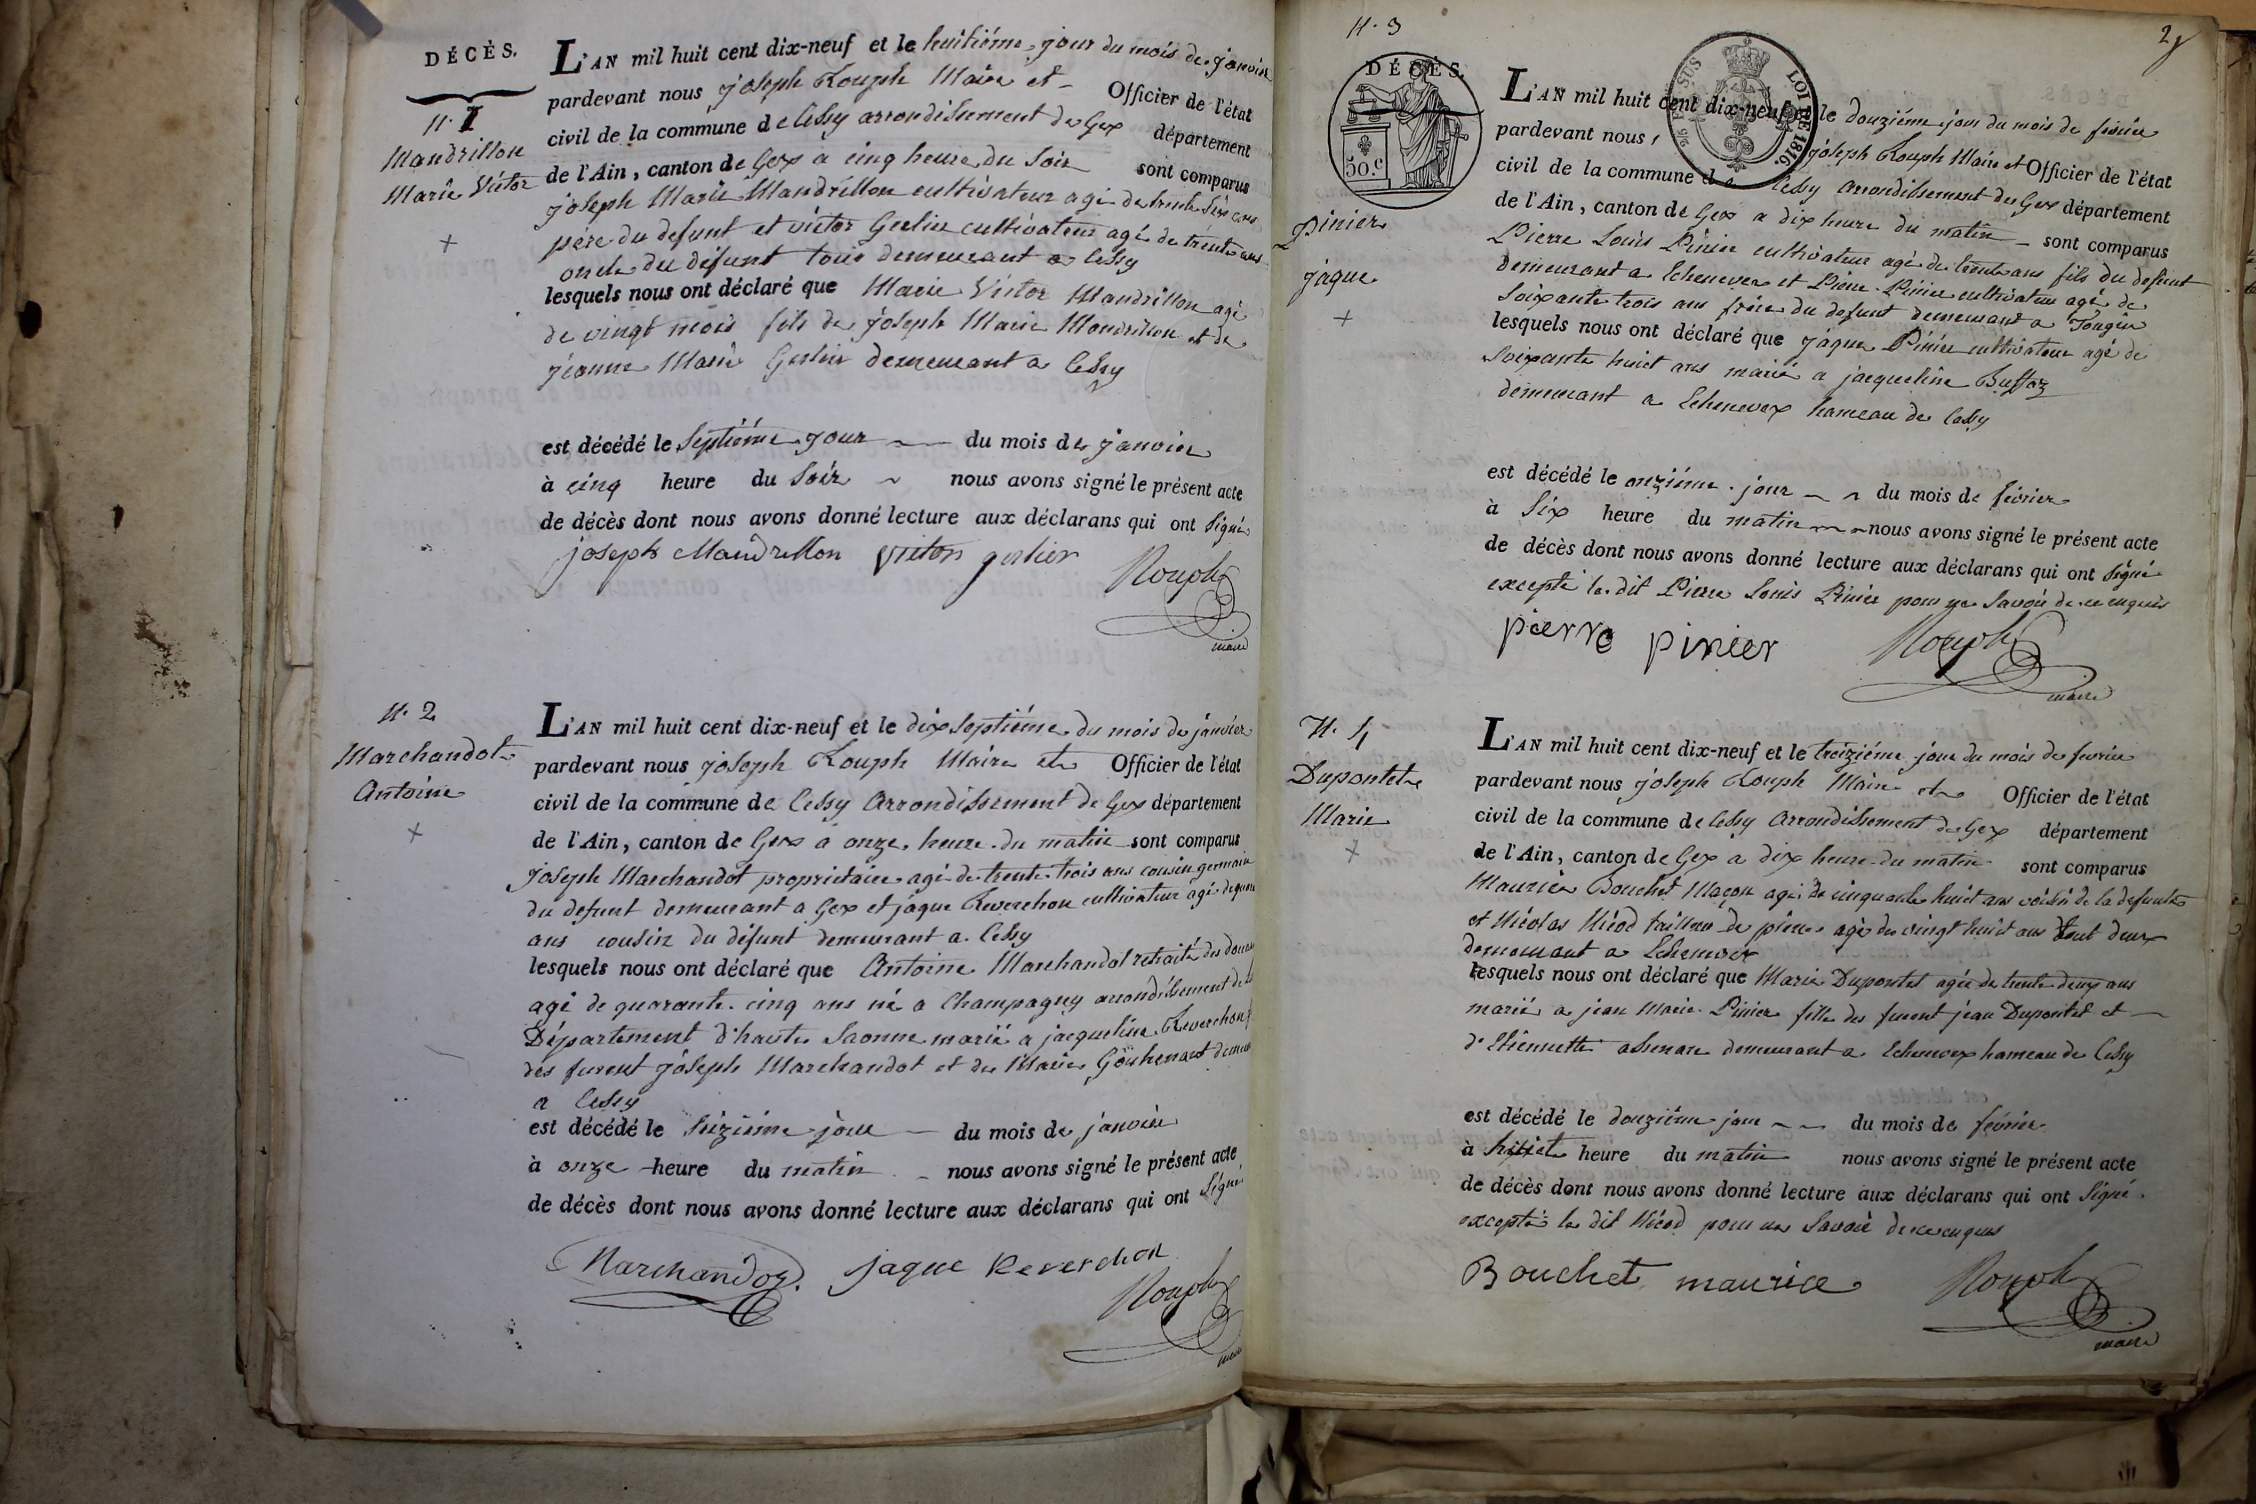 DÉCÈS.
N. 1
Mandrillon
Marie Victor
L'AN mil huit cent dix-neuf et le huitiéme jour du mois de janvier
pardevant nous joseph Rouph Maire et Officier de l'état
civil de la commune de Cessy arrondissement de Gex département
de l'Ain, canton de Gex a cinq heure du soir sont comparus
joseph Marie Mandrillon cultivateur agé de trente six ans
pére du defunt et victor Gerlier cultivateur agé de trente ans
oncle du défunt tous demeurant a Cessy
lesquels nous ont déclaré que Marie Victor Mandrillon agé
de vingt mois fils de joseph Marie Mandrillon et de
jeanne Marie Gerlier demeurant a Cessy
est décédé le septiéme jour du mois de janvier
à cinq heure du soir nous avons signé le présent acte
de décès dont nous avons donné lecture aux déclarans qui ont signé
joseph Mandrillon victor gerlier Rouph
maire
N. 2
Marchandot
Antoine
L'AN mil huit cent dix-neuf et le dix septiéme du mois de janvier
pardevant nous joseph Rouph Maire et Officier de l'état
civil de la commune de Cessy Arrondissement de Gex département
de l'Ain, canton de Gex a onze heure du matin sont comparus
joseph Marchandot proprietaire agé de trente trois ans cousin germain
du defunt demeurant a Gex et jaque Reverchon cultivateur agé de
ans cousin du défunt demeurant a Cessy
lesquels nous ont déclaré que Antoine Marchandot retraité des
agé de quarante cinq ans né a Champagny arrondissement de
Département d'haute Saonne marié a jacqueline Reverchon
des furent joseph Marchandot et de Marie
a Cessy
est décédé le seiziéme jour du mois de janvier
à onze heure du matin nous avons signé le présent acte
de décès dont nous avons donné lecture aux déclarans qui ont signé
Marchandot jaque Reverchon
Rouph
maire
N. 3
2
DÉCÈS.
50.c
LOI DE 1816.
EN SUS
Pinier
jaque
L'AN mil huit cent dix-neuf et le douziéme jour du mois de fevrier
pardevant nous joseph Rouph Maire et Officier de l'état
civil de la commune de Cessy arrondissement de Gex département
de l'Ain, canton de Gex a dix heure du matin sont comparus
Pierre Louis Pinier cultivateur agé de trente ans fils du defunt
demeurant a Echenevex et Pierre Pinier cultivateur agé de
soixante trois ans frére du defunt demeurant a Tougin
lesquels nous ont déclaré que jaque Pinier cultivateur agé de
soixante huict ans marié a jacqueline Buffaz
demeurant a Echenevex hameau de Cessy
est décédé le onziéme jour du mois de février
à six heure du matin nous avons signé le présent acte
de décès dont nous avons donné lecture aux déclarans qui ont signé
excepté le dit Pierre Louis Pinier pour ne savoir de ce enquis
pierre pinier Rouph
maire
N. 4
Dupontet
Marie
L'AN mil huit cent dix-neuf et le treiziéme jour du mois de fevrier
pardevant nous joseph Rouph Maire et Officier de l'état
civil de la commune de Cessy Arrondissement de Gex département
de l'Ain, canton de Gex a dix heure du matin sont comparus
Maurice Bouchet Maçon agé de cinquante huict ans voisin de la defunte
et Nicolas Nicod tailleur de pierre agé de vingt huict ans tout deux
demeurant a Echenevex
lesquels nous ont déclaré que Marie Dupontet agée de trente deux ans
marié a jean Marie Pinier fille des furent jean Dupontet et
d'Etiennette demeurant a Echenevex hameau de Cessy
est décédé le douziéme jour du mois de février
à huict heure du matin nous avons signé le présent acte
de décès dont nous avons donné lecture aux déclarans qui ont signé
excepté le dit Nicod pour ne savoir de ce enquis
Bouchet maurice Rouph
maire